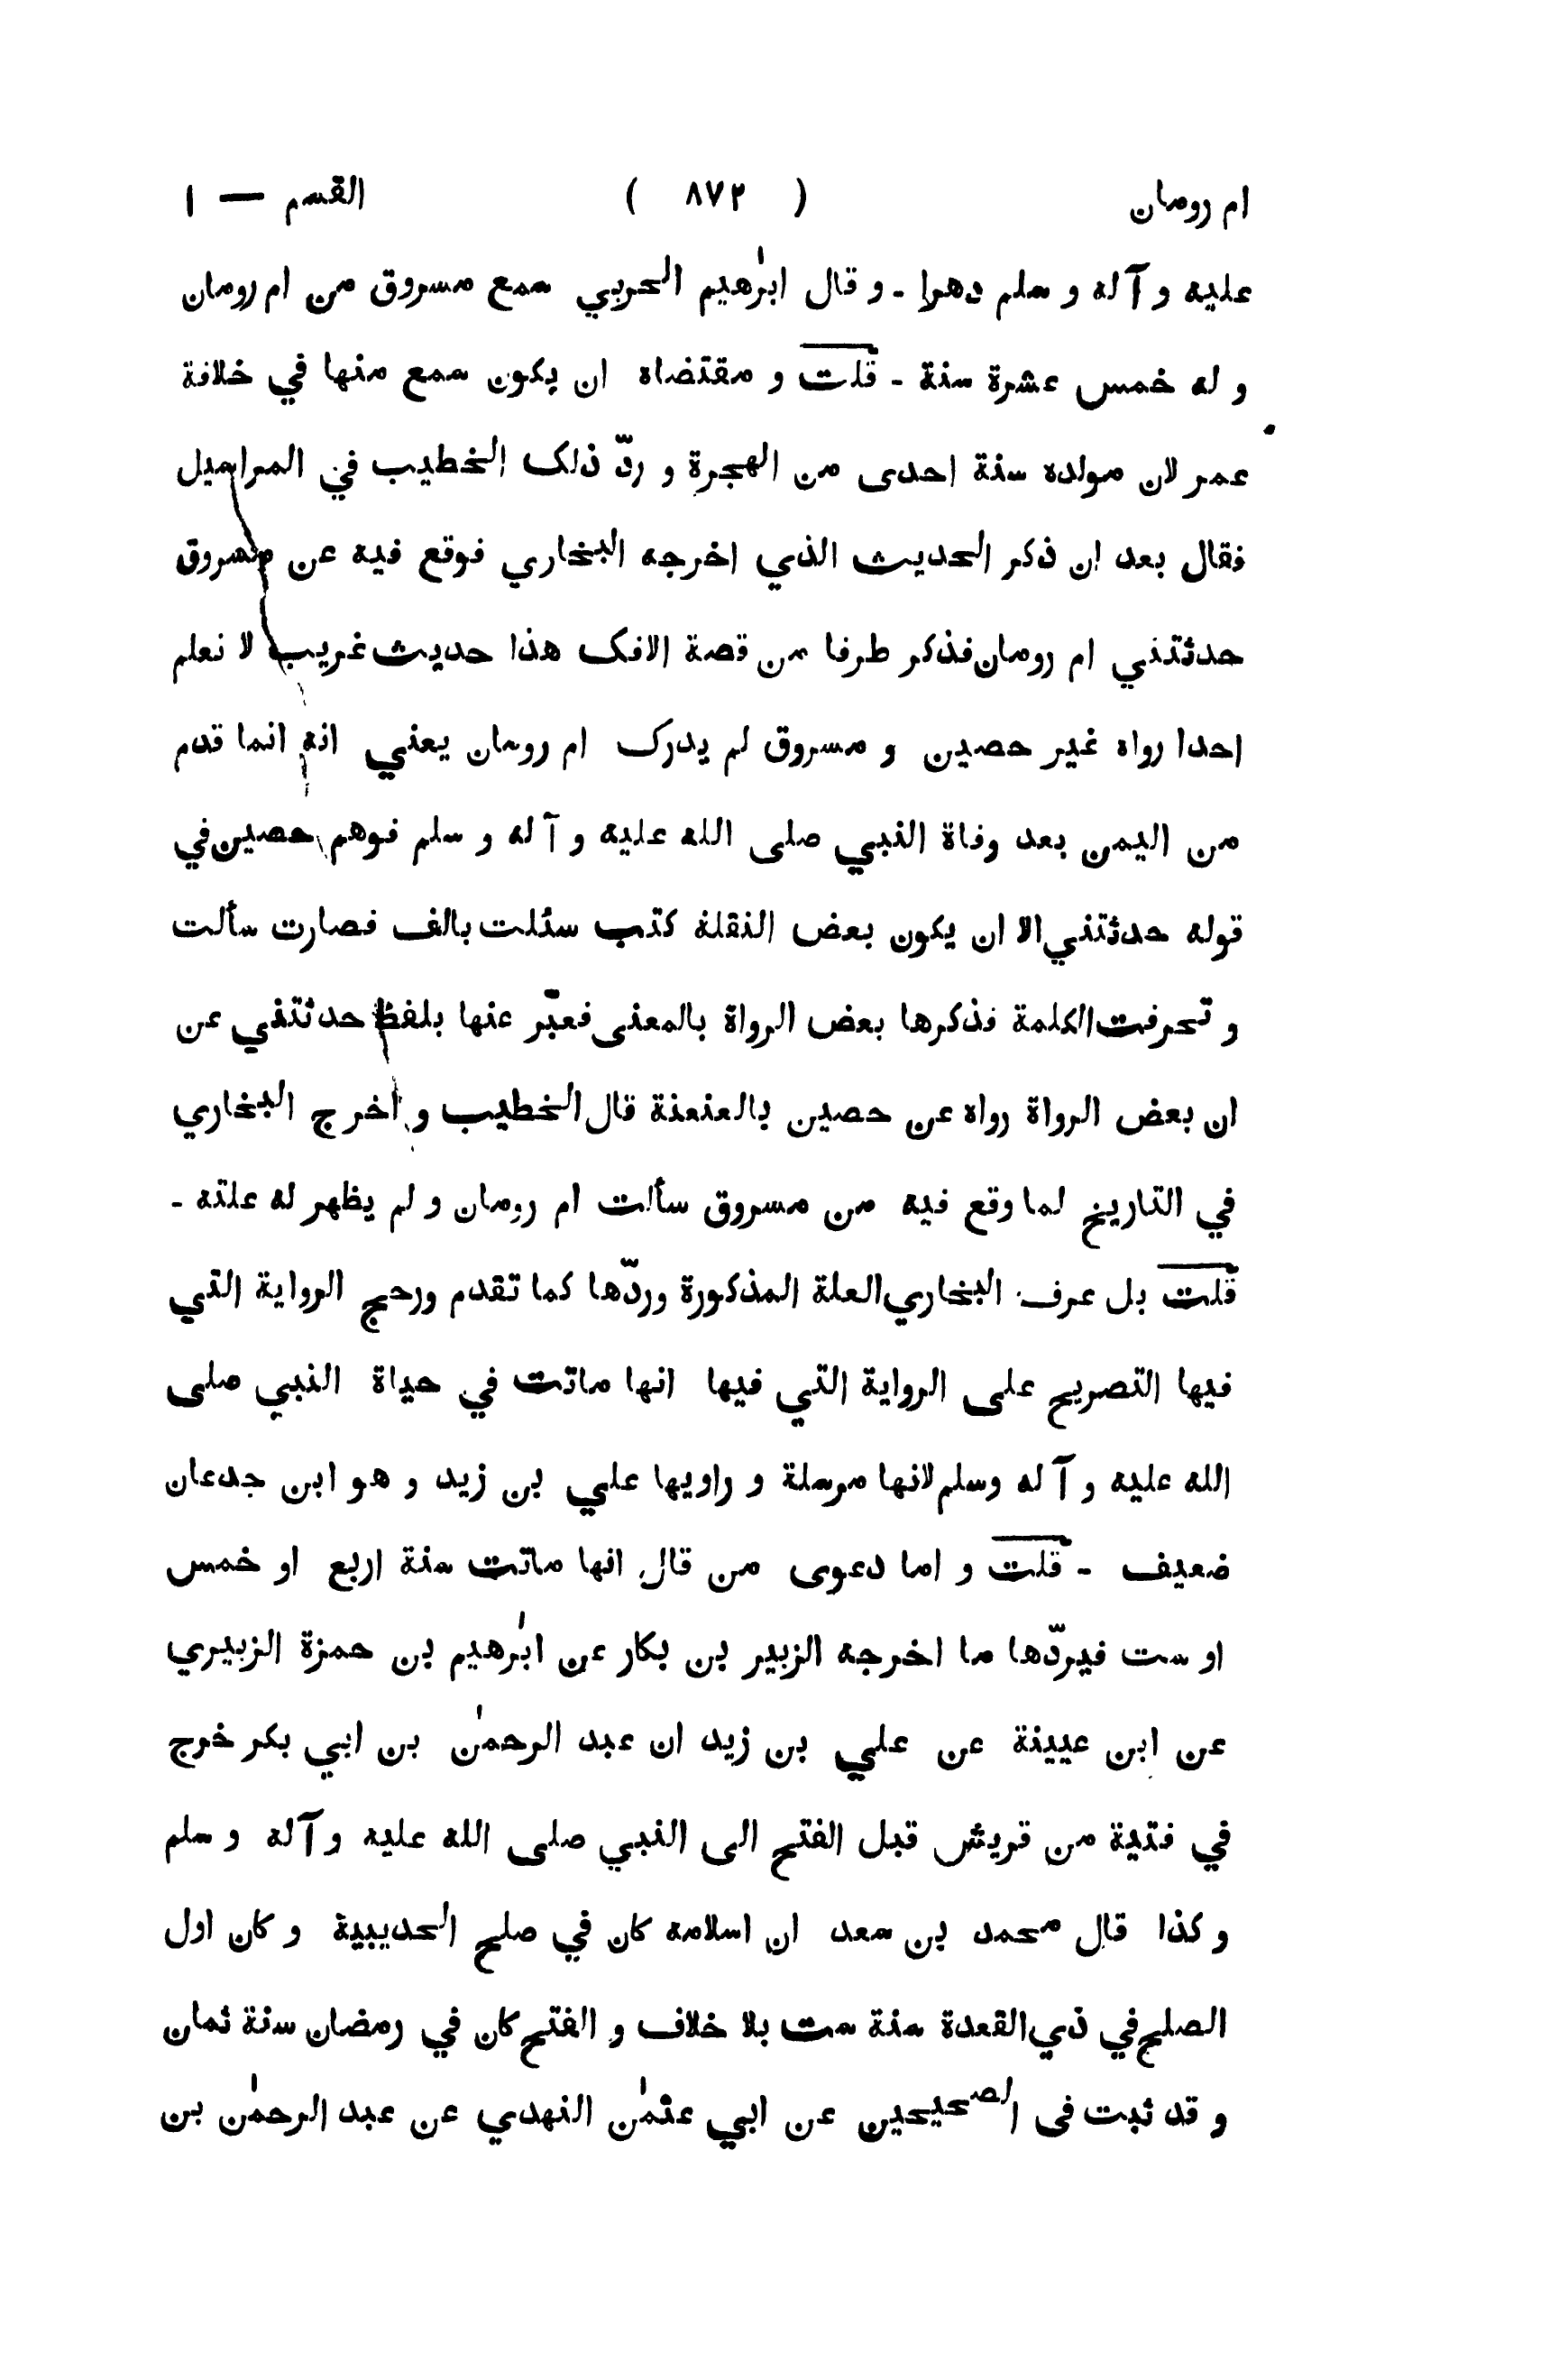 ام رومان ( ٨٧٢ ) القسم — ١
عليه و آله و سلم دهرا ـ و قال ابرٰهيم الحربي سمع مسروق من ام رومان
و له خمس عشرة سنة ـ قلت و مقتضاه ان يكون سمع منها في خلافة
عمر لان مولده سنة احدى من الهجرة و ردّ ذلك الخطيب في المراسيل
فقال بعد ان ذكر الحديث الذي اخرجه البخاري فوقع فيه عن مسروق
حدثتني ام رومان فذكر طرفا من قصة الافك هذا حديث غريب لا نعلم
احدا رواه غير حصين و مسروق لم يدرك ام رومان يعني انه انما قدم
من اليمن بعد وفاة النبي صلى الله عليه و آله و سلم فوهم حصين في
قوله حدثتني الا ان يكون بعض النقلة كتب سئلت بالف فصارت سألت
و تحرفت الكلمة فذكرها بعض الرواة بالمعنى فعبّر عنها بلفظ حدثتني عن
ان بعض الرواة رواه عن حصين بالعنعنة قال الخطيب و اخرج البخاري
في التاريخ لما وقع فيه من مسروق سألت ام رومان و لم يظهر له علته ـ
قلت بل عرف البخاري العلة المذكورة وردّها كما تقدم ورجح الرواية التي
فيها التصريح على الرواية التي فيها انها ماتت في حياة النبي صلى
الله عليه و آله وسلم لانها مرسلة و راويها علي بن زيد و هو ابن جدعان
ضعيف ـ قلت و اما دعوى من قال انها ماتت سنة اربع او خمس
او ست فيردّها ما اخرجه الزبير بن بكار عن ابرٰهيم بن حمزة الزبيري
عن ابن عيينة عن علي بن زيد ان عبد الرحمٰن بن ابي بكر خرج
في فتية من قريش قبل الفتح الى النبي صلى الله عليه و آله و سلم
و كذا قال محمد بن سعد ان اسلامه كان في صلح الحديبية و كان اول
الصلح في ذي القعدة سنة ست بلا خلاف و الفتح كان في رمضان سنة ثمان
و قد ثبت فى الصحيحين عن ابي عثمٰن النهدي عن عبد الرحمٰن بن